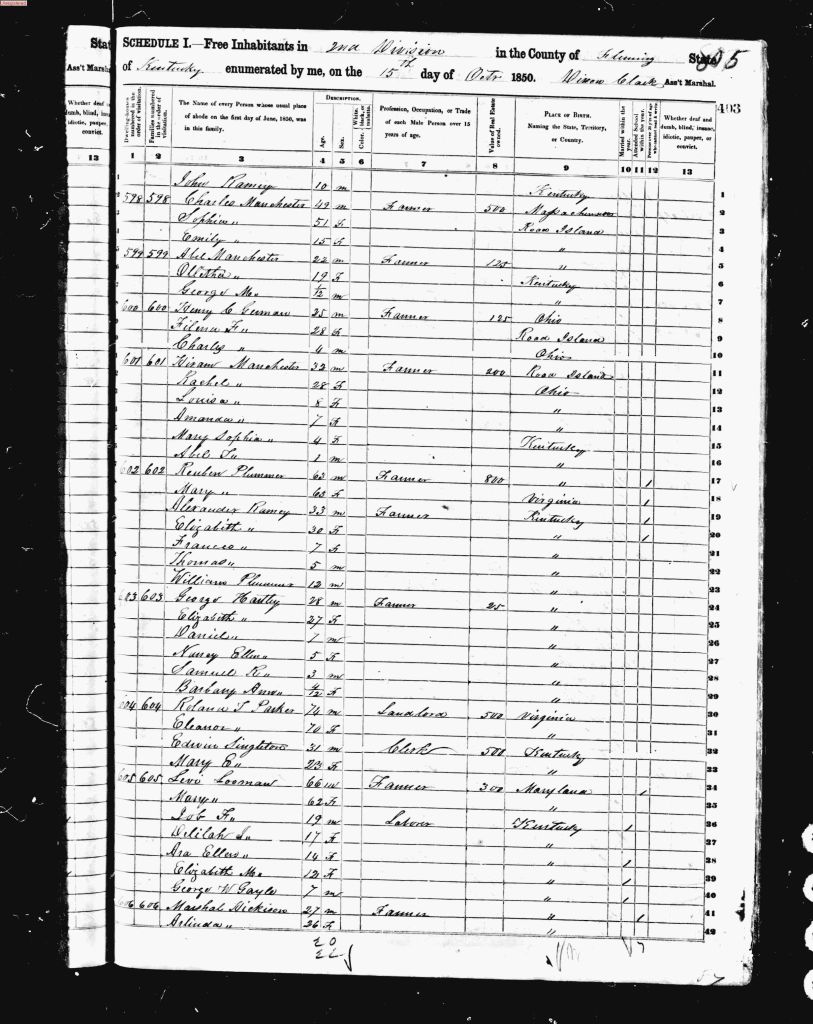 State
SCHEDULE I.—Free Inhabitants in 2nd Division in the County of Fleming State
of Kentucky enumerated by me, on the 15th day of Octr 1850. Dixon Clark Ass't Marshal.
Ass't Marshal
5
403
Whether deaf and dumb, blind, insane, idiotic, pauper, or convict.
Dwelling-houses numbered in the order of visitation.
Families numbered in the order of visitation.
The Name of every Person whose usual place of abode on the first day of June, 1850, was in this family.
DESCRIPTION.
Age.
Sex.
Color. White, black, or mulatto.
Profession, Occupation, or Trade of each Male Person over 15 years of age.
Value of Real Estate owned.
PLACE OF BIRTH. Naming the State, Territory, or Country.
Married within the year.
Attended School within the year.
Persons over 20 y'rs of age who cannot read & write.
Whether deaf and dumb, blind, insane, idiotic, pauper, or convict.
13 1 2 3 4 5 6 7 8 9 10 11 12 13
John Ramey 10 m Kentucky 1
598 598 Charles Manchester 49 m Farmer 500 Massachusetts 2
Sophia " 51 F Road Island 3
Emily " 15 F " 4
599 599 Abel Manchester 22 m Farmer 125 " 5
" 19 F Kentucky 6
George M. 1/12 m " 7
600 600 Henry C German 25 m Farmer 125 Ohio 8
F " 28 F Road Island 9
Charles " 4 m Ohio 10
601 601 Hiram Manchester 32 m Farmer 200 Road Island 11
Rachel " 28 F Ohio 12
Louisa " 8 F " 13
Amanda " 7 F " 14
Mary Sophia " 4 F Kentucky 15
Abel " 1 m " 16
602 602 Reuben Plummer 63 m Farmer 800 " 1 17
Mary " 63 F Virginia 1 18
Alexander Ramey 33 m Farmer Kentucky 1 19
Elizabeth " 30 F " 1 20
Frances " 7 F " 21
Thomas " 5 m " 22
William Plummer 12 m " 23
603 603 George Hartley 28 m Farmer 25 " 24
Elizabeth " 27 F " 25
Daniel " 7 m " 26
Nancy Ellen " 5 F " 27
Samuel R " 3 m " 28
Barbary Ann " 4/12 F " 29
604 604 Roland T Parker 74 m Landlord 500 Virginia 30
Eleanor " 70 F " 31
Edwin Singleton 31 m Clerk 500 Kentucky 32
Mary E " 23 F " 33
605 605 Levi Looman 66 m Farmer 300 Maryland 1 34
Mary " 62 F " 35
Job F " 19 m Laborer Kentucky 1 36
Delilah J " 17 F " 37
Ara Ellen " 14 F " 1 38
Elizabeth M. 12 F " 1 39
George W Gayle 7 m " 1 40
606 606 Marshal Dickison 27 m Farmer " 1 41
Arlinda " 26 F " 42
20
22
7